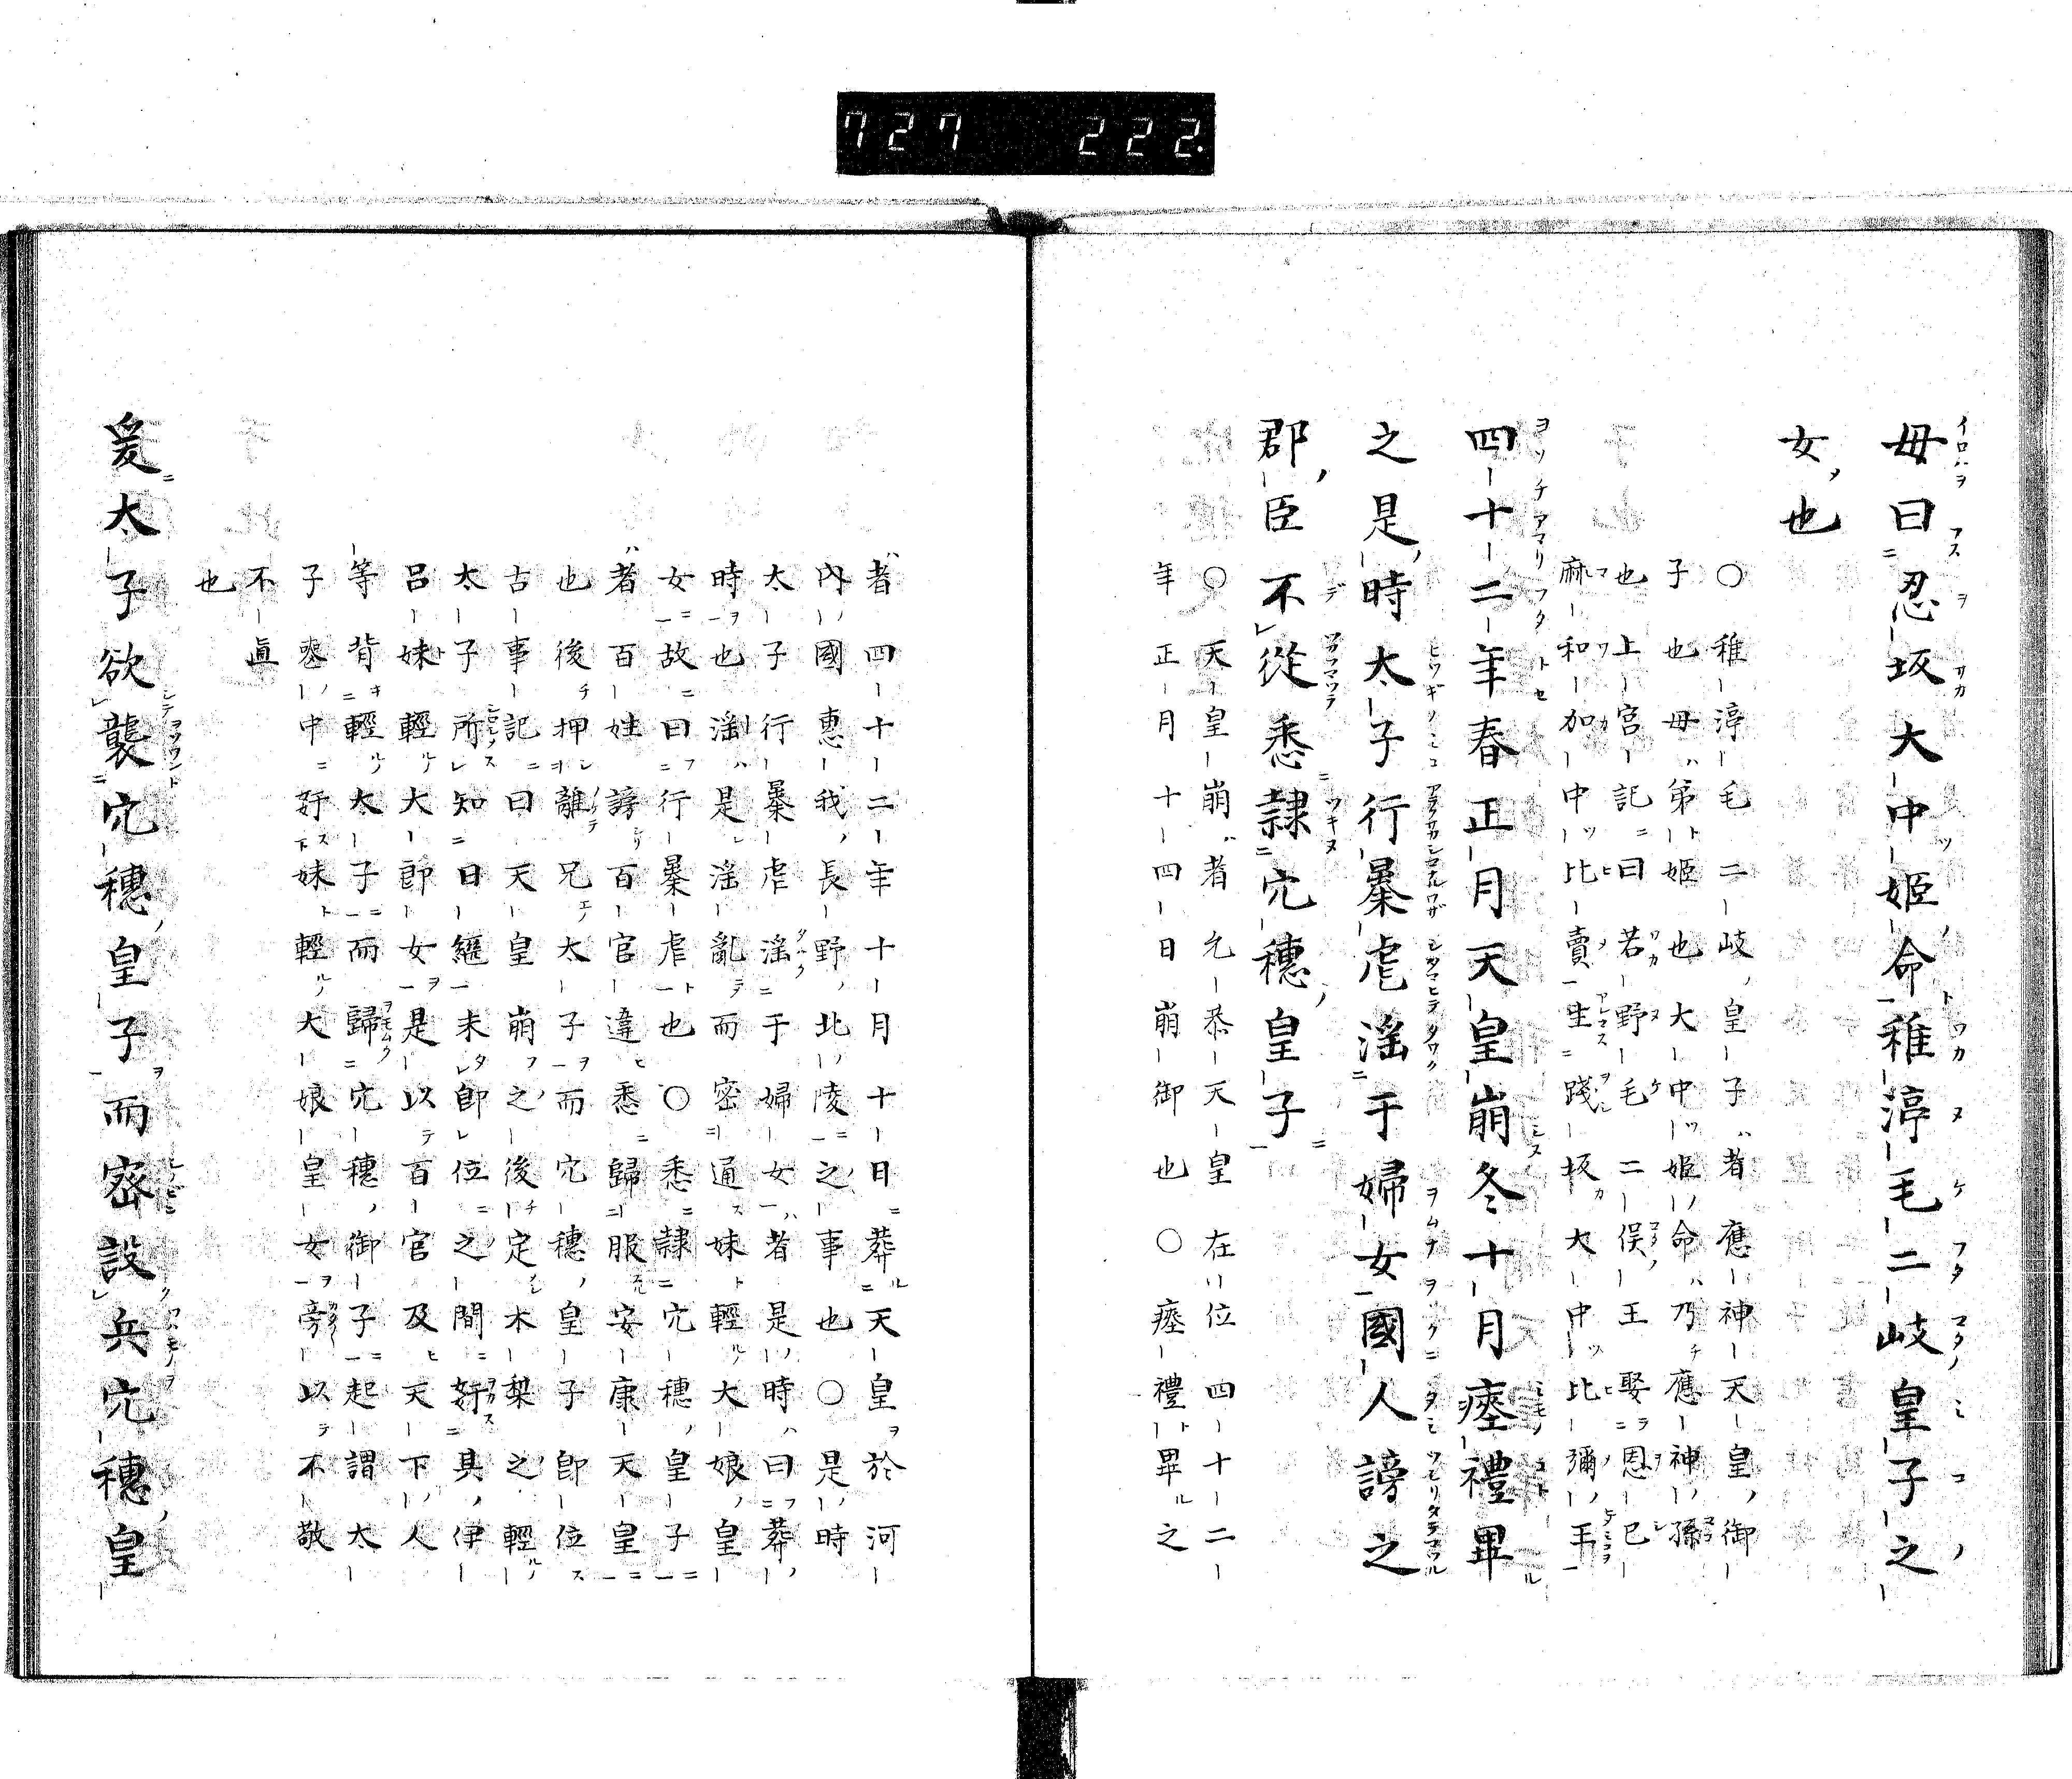 727 222
母曰忍坂大中姫命稚渟毛二岐皇子之
女也
○稚渟毛二岐皇子者應神天皇御
子也母第姫也大中姫命乃應神孫
也上宮記曰若野毛二俣王娶恩已
麻和加中比賣生踐坂大中比彌王
四十二年春正月天皇崩冬十月瘞禮畢
之是時太子行㬥虐滛于婦女國人謗之
郡臣不從悉隷穴穗皇子
○天皇崩者允恭天皇在位四十二
年正月十四日崩御也○瘞禮畢之
者四十二年十月十日葬天皇於河
内國惠我長野北陵之事也○是時
太子行㬥虐滛于婦女者是時曰葬
時也滛是滛亂而密通妹輕大娘皇
女故曰行㬥虐也○悉隷穴穗皇子
者百姓謗百官違悉歸服安康天皇
也後押離兄太子而穴穗皇子即位
古事記曰天皇崩之後定木梨之輕
太子所知日繼未即位之間奸其伊
呂妹輕大郎女是以百官及天下人
等背輕太子而歸穴穗御子起謂太
子喪中奸妹輕大娘皇女旁以不敬
不眞也
爰太子欲襲穴穗皇子而宻設兵穴穗皇